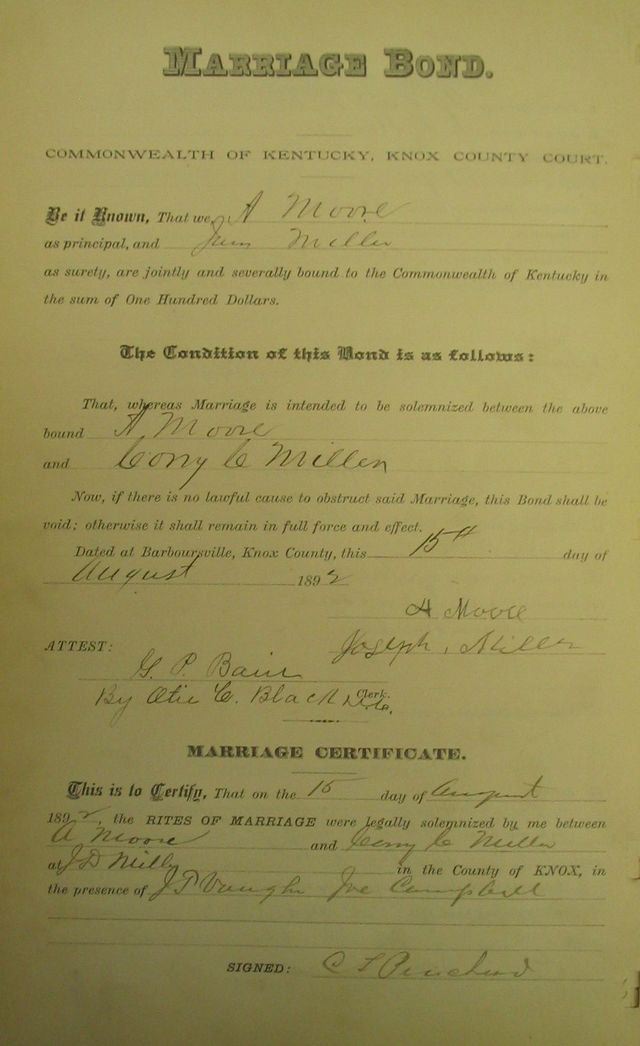 MARRIAGE BOND.
COMMONWEALTH OF KENTUCKY, KNOX COUNTY COURT.
Be it Known, That we, A Moore
as principal, and Miller
as surety, are jointly and severally bound to the Commonwealth of Kentucky in
the sum of One Hundred Dollars.
The Condition of this Bond is as follows:
That, whereas Marriage is intended to be solemnized between the above
bound A Moore
and Cory C Miller
Now, if there is no lawful cause to obstruct said Marriage, this Bond shall be
void; otherwise it shall remain in full force and effect.
Dated at Barboursville, Knox County, this 15th day of
August 1892
A Moore
Joseph Miller
ATTEST:
G. P. Bain
Clerk.
By Otie C. Black D.C.
MARRIAGE CERTIFICATE.
This is to Certify, That on the 15 day of August
1892, the RITES OF MARRIAGE were legally solemnized by me between
A Moore and Cory C Miller
at J D Mills in the County of KNOX, in
the presence of J T Vaughn Joe Campbell
SIGNED: C